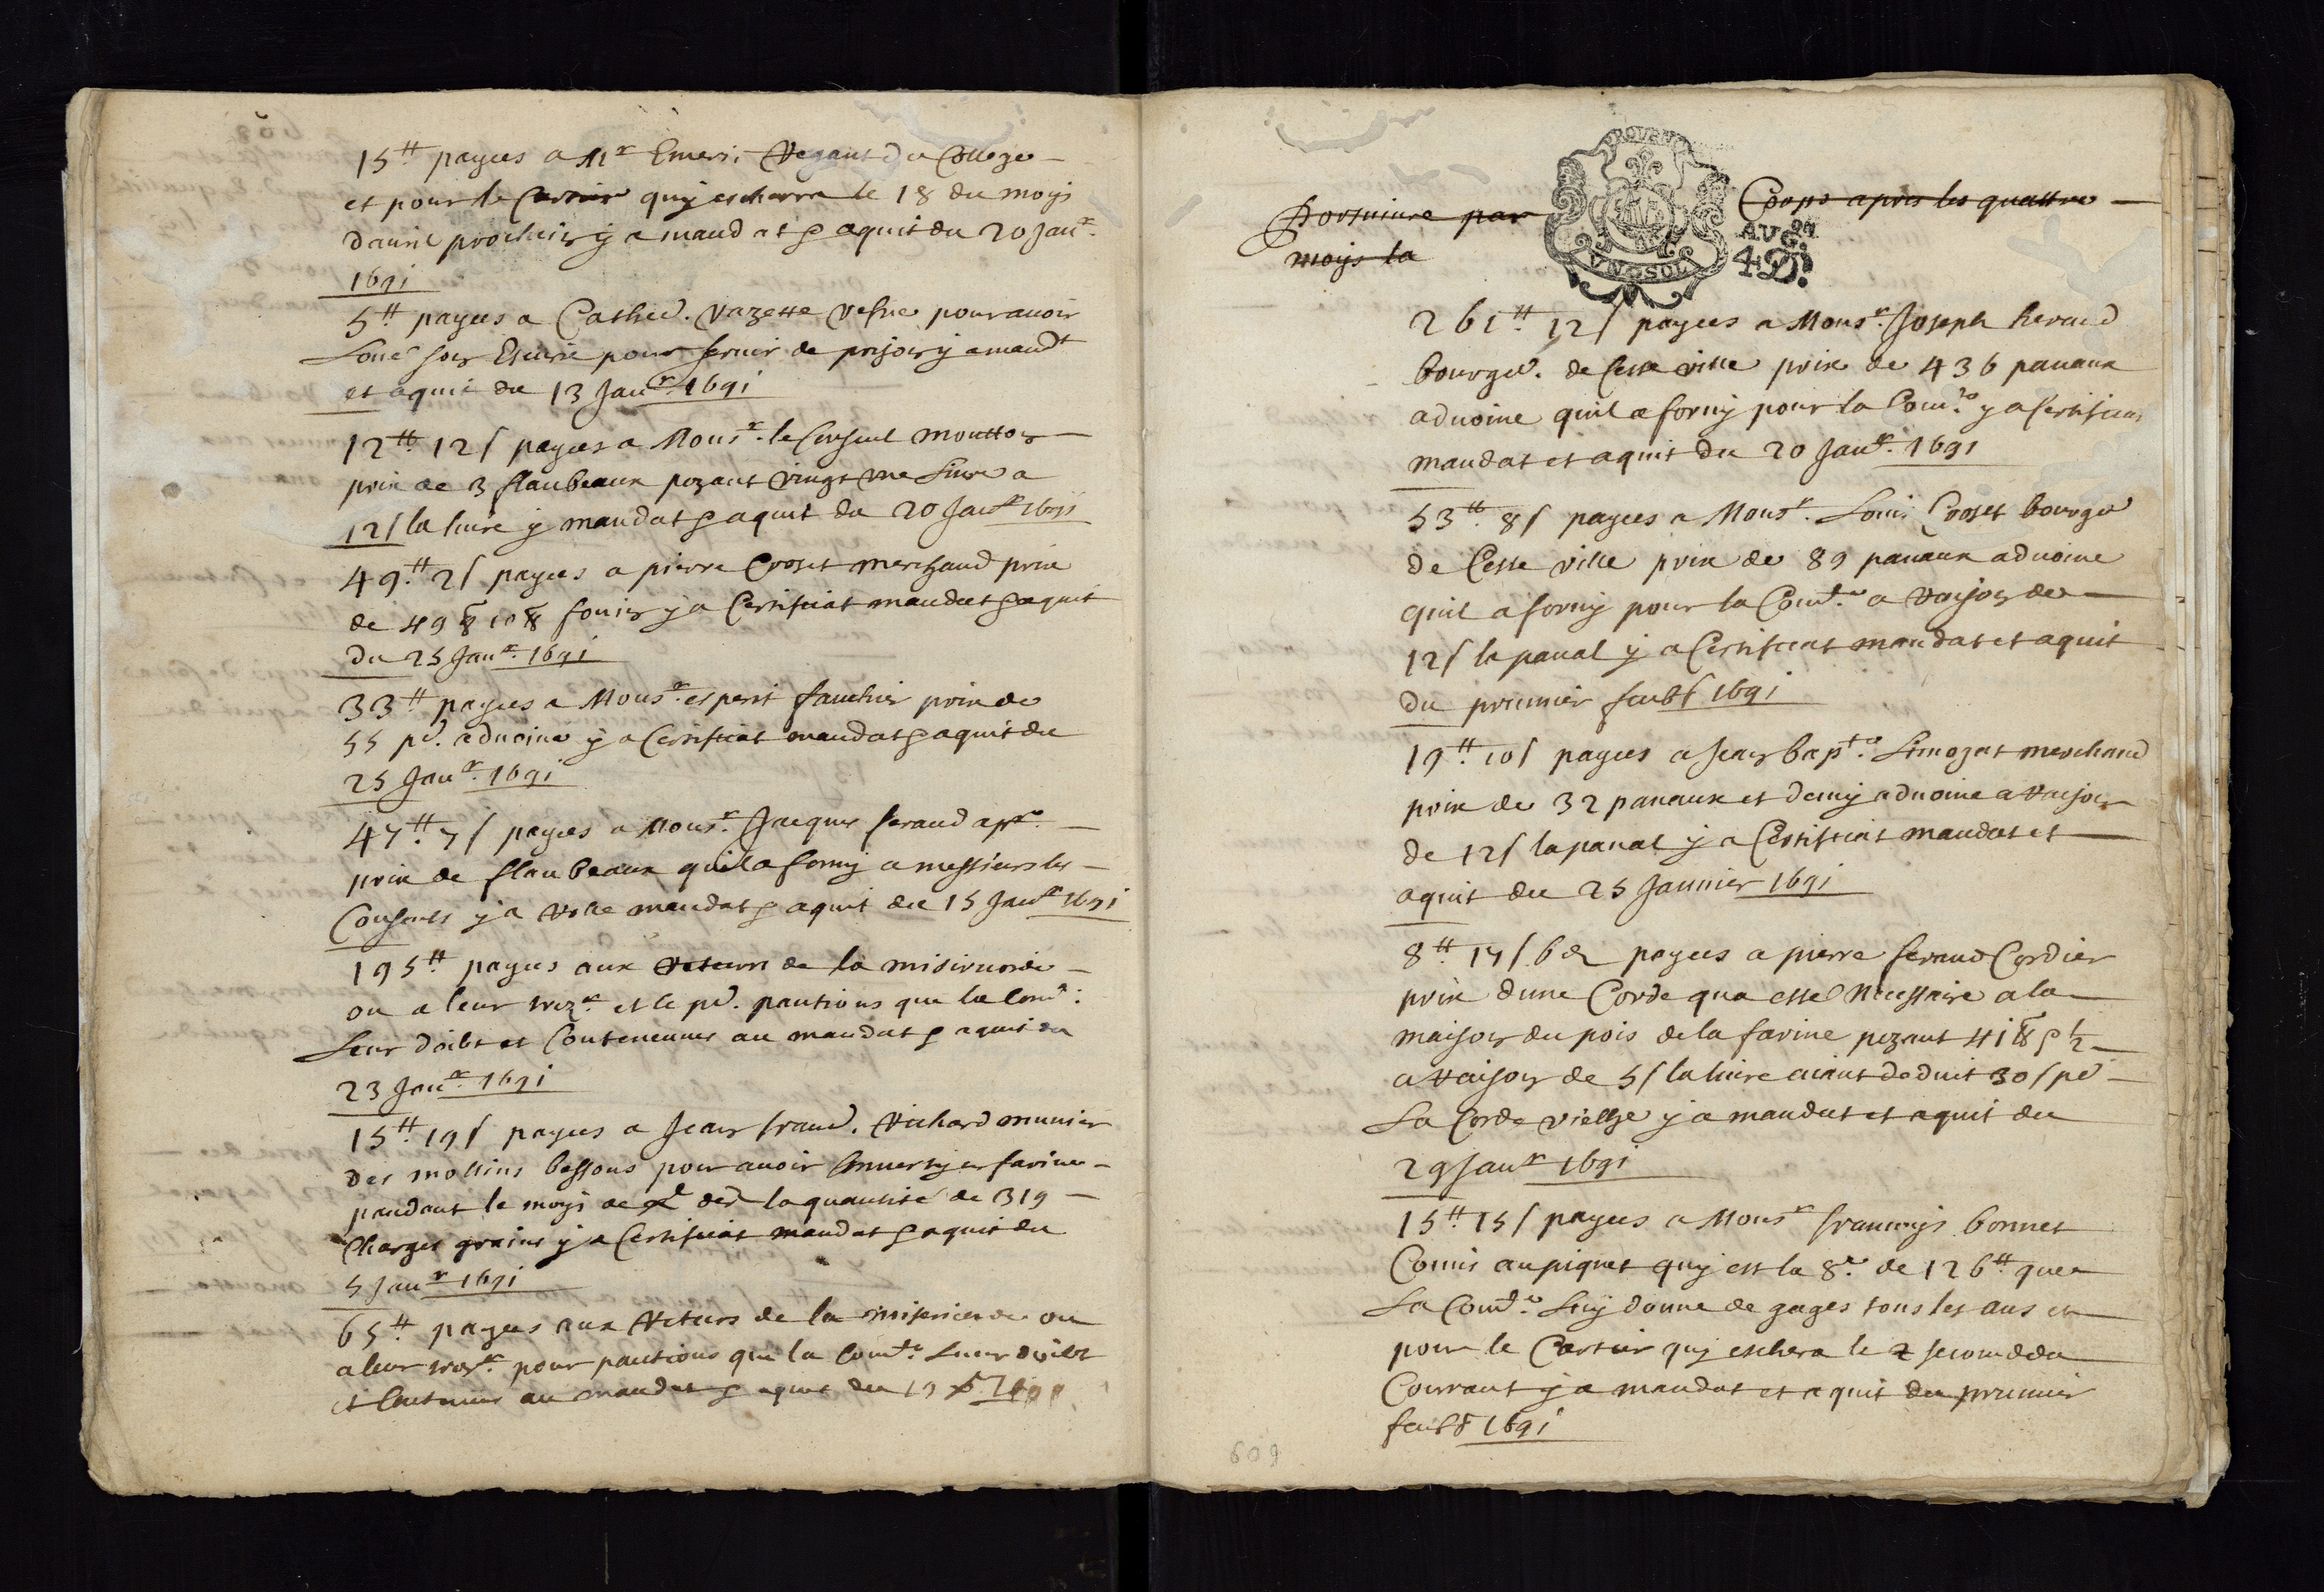 15 ₶ payees a Mr Emeric Regant du College
et pour le Cartier quy escherra le 18 du moys
dauril prochain y a mandat & aquit du 20 Janr.
1691
5 ₶ payees a Cathed. Vazette vefue pour auoir
Loué son Escurie pour seruir de prison y a mandt
et aquit du 13 Janr. 1691
12 ₶ 12 s payees a Monsr. le Consul moutton
prix de 3 flanbeaux pezant vingt une Liure a
12 s la liure y mandat & aquit du 20 Janr 1691
49 ₶ 2 s payees a pierre Croset merchand prix
de 49 10 foin y a Certificat mandat & aquit
du 25 Janr. 1691
33 ₶ payees a Monsr. esperit fauchier prix de
55 pd. aduoine y a Certificat mandat & aquit du
25 Janr. 1691
47 ₶ 7 s payees a Monsr. Jacques feraud apre.
prix de flanbeaux quil a forny a messieurs les
Consuls y a Rolle mandat & aquit du 15 Janr 1691
195 ₶ payees aux Recteurs de la misiricorde
ou a leur trezr. et le pd. pantions que la Comté.
Leur doibt et Contenennes au mandat & aquit du
23 Janr. 1691
15 ₶ 19 s payees a Jean francd. Richard munier
des mollins bessons pour auoir Conuerty en farine
pandant le moys de de la quantité de 319
Charges grains y a Certificat mandat & aquit du
5 Janr 1691
65 ₶ payees aux Reteurs de la misericorde ou
a leur trezr. pour pantions que la Comté. Leur doibt
et Contenues au mandat & aquit du 19
GA
VN SOL
AVG.on
4 D.
Dorsuiure par Corps apres les quattre
moys la
261 ₶ 12 s payees a Monsr. Joseph heraud
bourgd. de Cette ville prix de 436 panaux
aduoine quil a forny pour la Comté. y a Certificat
mandat et aquit du 20 Janr. 1691
53 ₶ 8 s payees a Monsr. Louis Croset bourge
de Cette ville prix de 89 panaux aduoine
quil a forny pour la Comté. a Raison de
12 s le panal y a Certificat mandat et aquit
du prumier feubr 1691
19 ₶ 10 s payees a Jean bapte. Limozat merchand
prix de 32 panaux et demy aduoine a Raison
de 12 s la panal y a Certificat mandat et
aquit du 25 Januier 1691
8 ₶ 17 s 6 d payees a pierre feraud Cordier
prix dune Corde qua esté Necessaire a la
maison du pois de la farine pezant 41 & ½
a Raison de 5 s la liure aiant deduit 30 s pd
La Corde vielhe y a mandat et aquit du
29 Janr 1691
15 ₶ 15 s payees a Monsr francoys bonnet
Comis au piquet quy est la 8e. de 126 ₶ que
La Comté. Luy donne de gages tous les ans et
pour le Cartier quy eschera le second du
Courrant y a mandat et aquit du prumier
feubr 1691
609